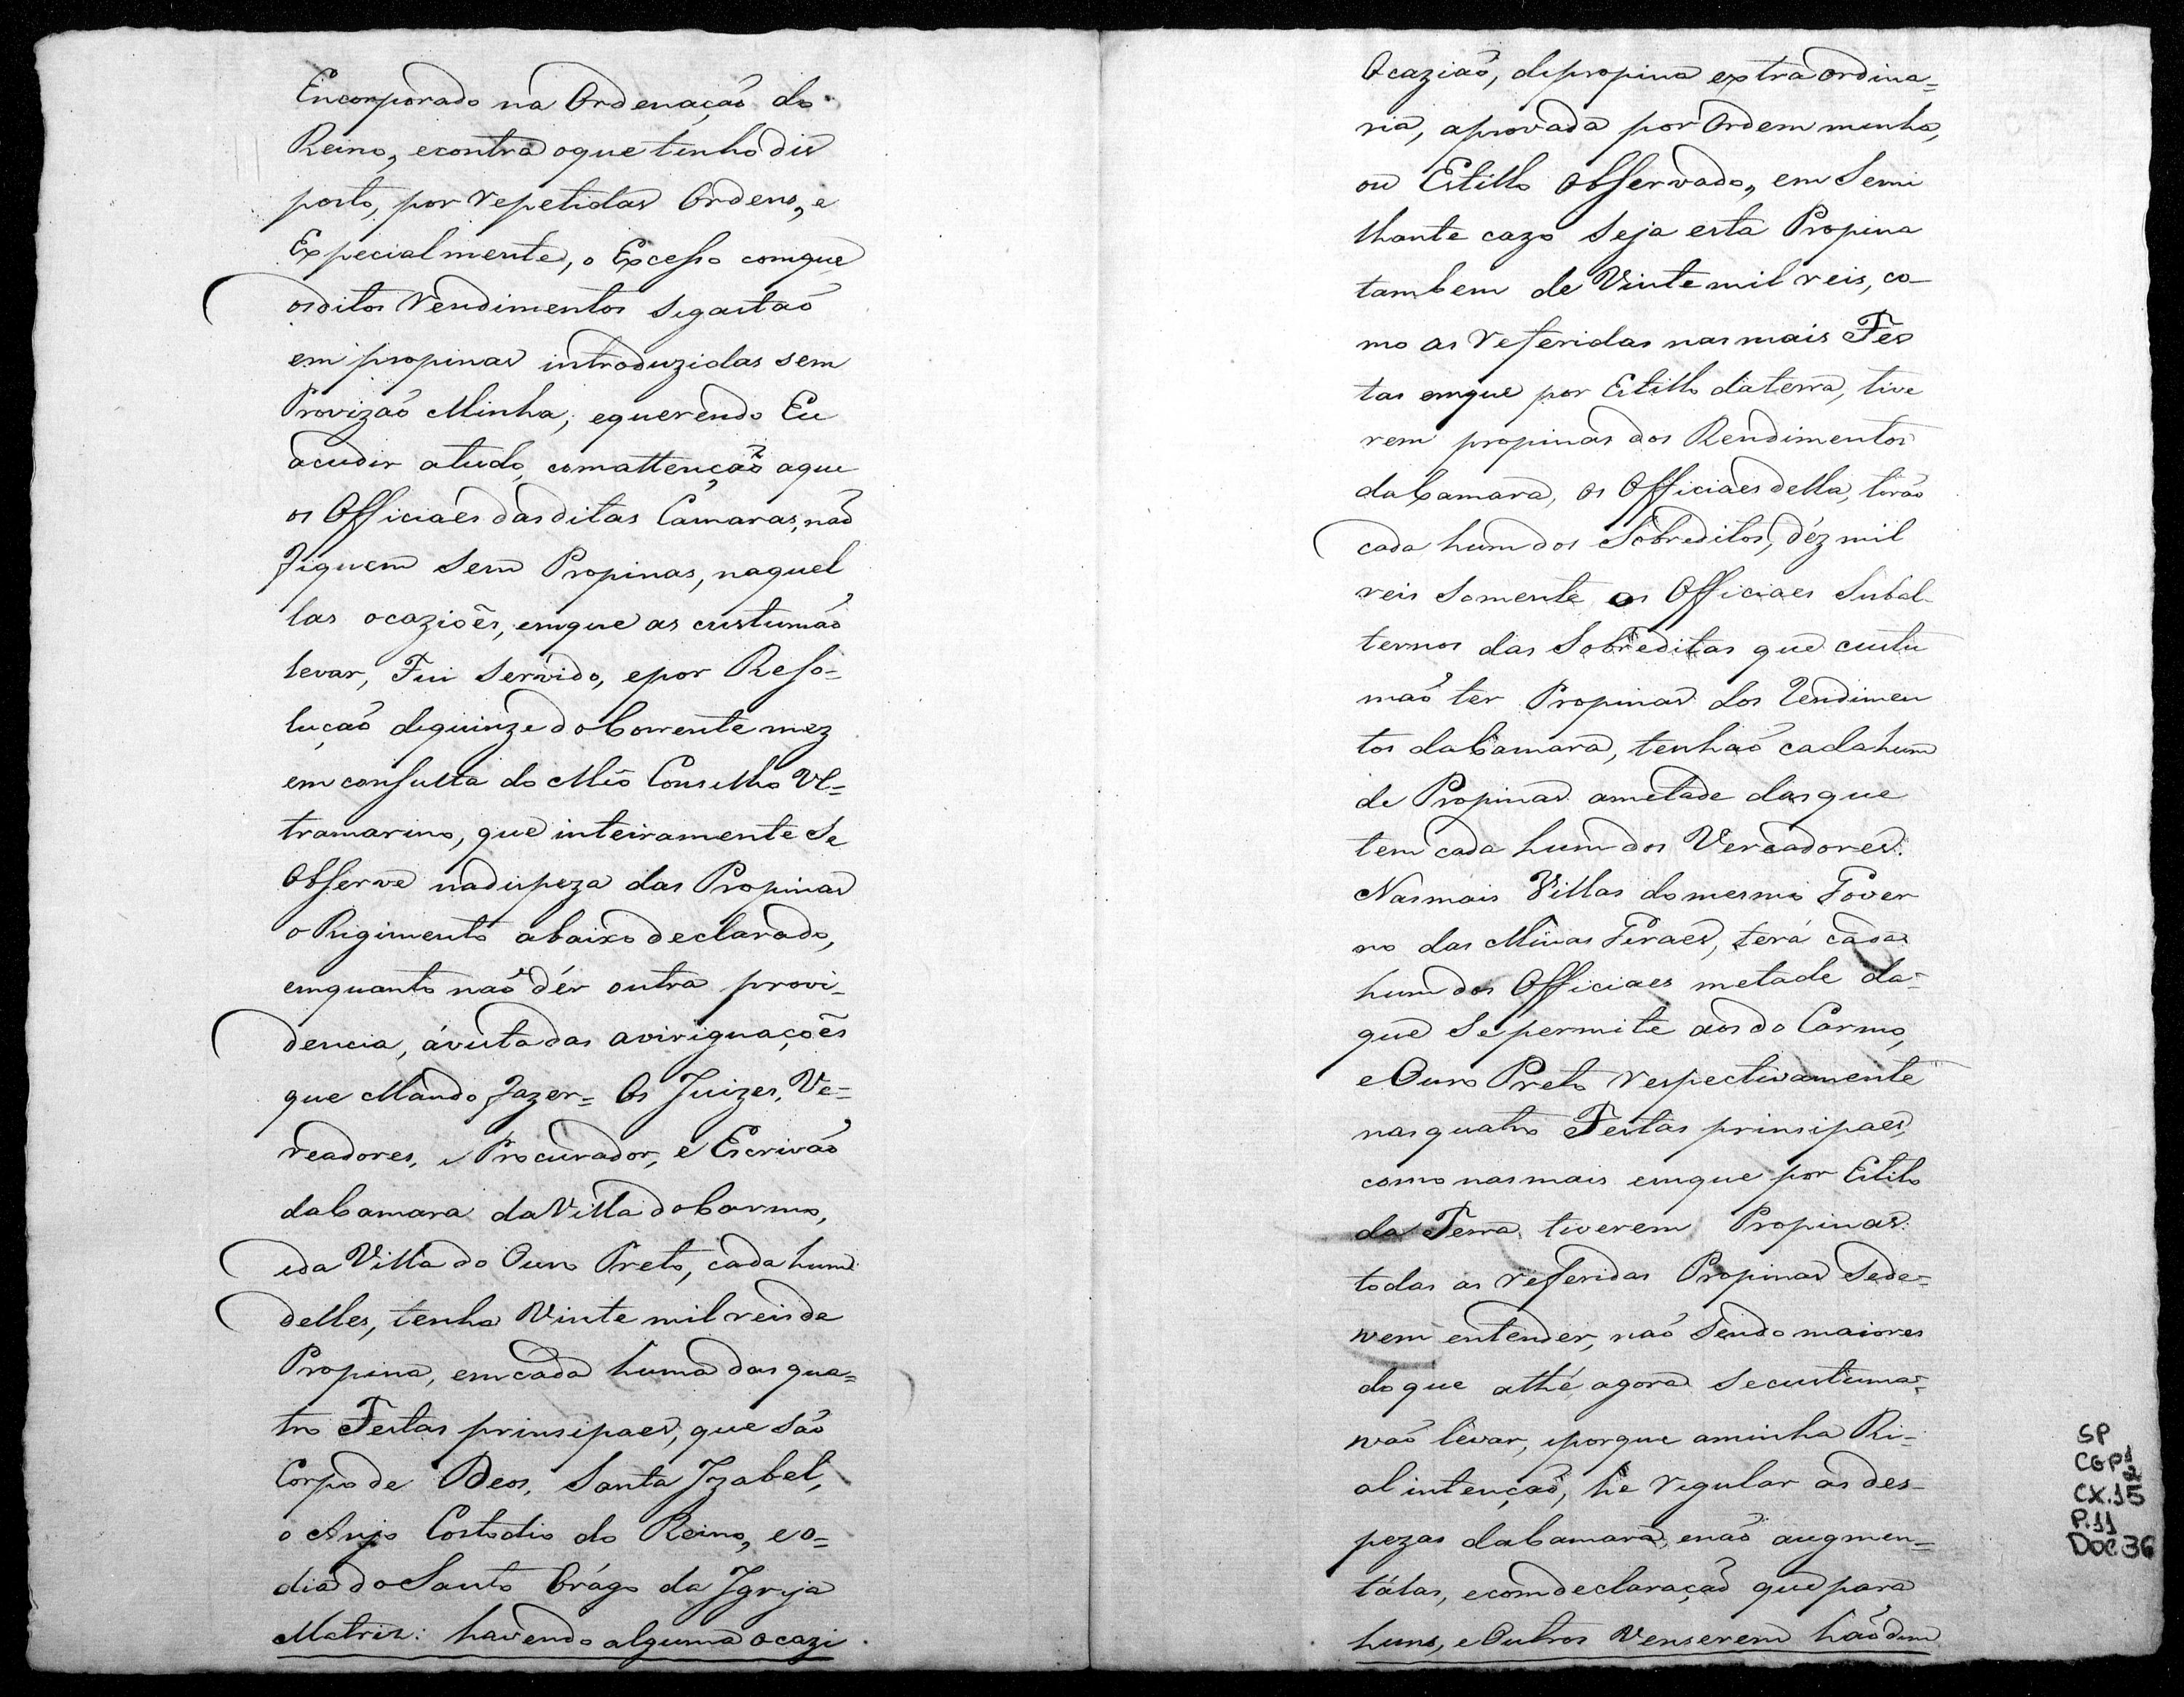 Encorporado na Ordenação do
Reino, econtra oque tenho dis
posto, por repetidas Ordens, e
Expecialmente, o Excesso comque
osditos rendimentos segastaõ
em propinas introduzidas sem
Provizaõ Minha; equerendo Eu
acudir atudo, comattençaõ aque
os Officiaes dasditas Camaras, naõ
fiquem sem Propinas, naquel
las ocaziões, emque as custumaõ
levar, Fui servido, epor Reso-
luçaõ dequinze do Corrente mez
em consulta do Meo Conselho Ul=
tramarino, que inteiramente se
Observe nadispeza das Propinas
o Rigimento abaixo declarado,
emquanto naõ dér outra provi-
dencia, ávista das aviriguações
que Mando fazer= Os Juizes, Ve=
readores, e Procurador, e Escrivaõ
daCamara daVilla do Carmo,
eda Villa do Ouro Preto, cada hum
delles, tenha Vinte mil reis de
Propina, emcada huma das qua=
tro Festas prinsipaes, que saõ
Corpo de Deos, Santa Izabel,
o Anjo Costodio do Reino, eo=
dia do Santo Orágo da Igreja
Matriz: havendo alguma ocazi
Ocaziaõ, depropina extraordina=
ria, aprovada por Ordem minha,
ou Estillo Observado, em Semi
lhante cazo seja esta Propina
tambem de Vinte mil reis, co-
mo as referidas nas mais Fes
tas emque por Estillo da terra, tive
rem propinas dos Rendimentos
daCamara, os Officiaes della, teraõ
cada hum dos Sobreditos, déz mil
reis somente os Officiaes Subal-
ternos das Sobreditas que custu
maõ ter Propinas dos Rendimen
tos daCamara, tenhaõ cadahum
de Propinas ametade das que
tem cada hum dos Vereadores.
Nasmais Villas do mesmo Gover
no das Minas Geraes, terá cada
hum dos Officiaes metade da-
que se permite aos do Carmo,
e Ouro Preto respectivamente
nas quatro Festas prinsipaes,
como nas mais emque por Estilo
da Terra tiverem Propinas:
todas as referidas Propinas sede=
vem entender, naõ sendo maiores
doque athé agora secustuma=
vaõ levar, eporque aminha Ri-
al intençaõ, he regular as des-
pezas daCamara, enaõ augmen=
tálas, ecomdeclaraçaõ que para
huns, eOutros Venserem haõdem
SP
CGP1
CX.15
P.11
Doc 36